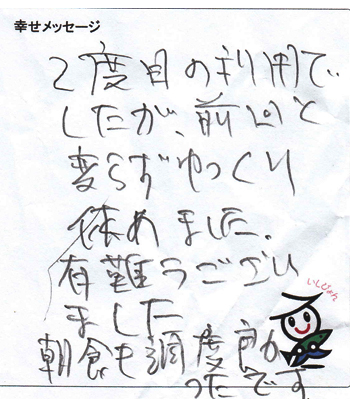 幸せメッセージ
2度目の利用で
したが、前回と
変らずゆっくり
休めました。
有難うござい
ました
朝食も調度良か
ったです
いしぴょん